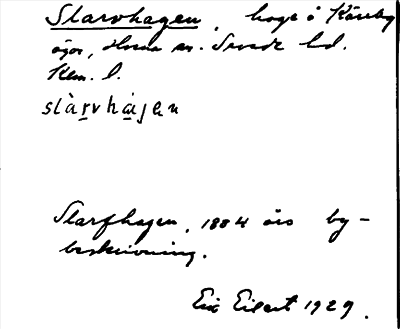 Slarvhagen, hage å Käreby
ägor, Horns sn. Svade hd.
Klm. l.
slàrvhagen
Slarfhagen, 1884 års by-
beskrivning.
Eric Eilert 1929.